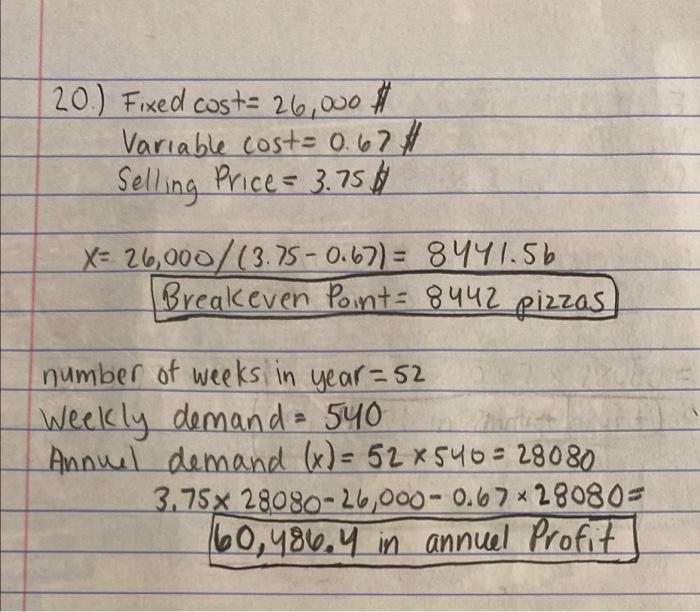 20.) Fixed cost= 26,000 $
Variable cost= 0.67 $
Selling Price = 3.75 $
x= 26,000/(3.75-0.67)= 8441.56
Breakeven Point= 8442 pizzas
number of weeks in year = 52
Weekly demand = 540
Annuel demand (x)= 52 × 540 = 28080
3.75× 28080-26,000-0.67×28080=
60,486.4 in annuel Profit